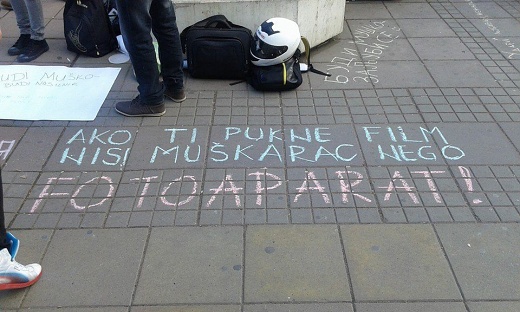 BUDI MUŠKO
БУДИ МУШКО
AKO TI PUKNE FILM
NISI MUŠKARAC NEGO
FOTOAPARAT!